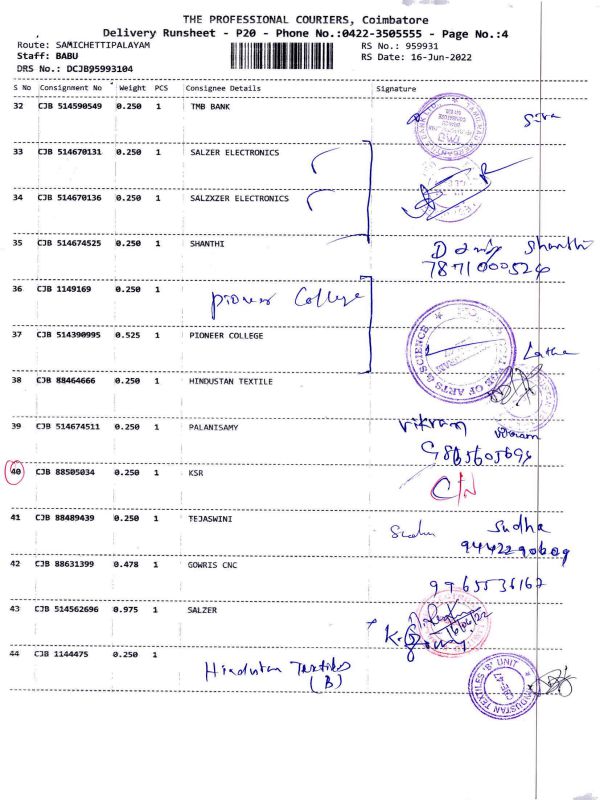 THE PROFESSIONAL COURIERS, Coimbatore
Delivery Runsheet - P20 - Phone No.:0422-3505555 - Page No.:4
Route: SAMICHETTIPALAYAM RS No.: 959931
Staff: BABU RS Date: 16-Jun-2022
DRS No.: DCJB95993104
S No Consignment No Weight PCS Consignee Details Signature
32 CJB 514590549 0.250 1 TMB BANK Siva
33 CJB 514670131 0.250 1 SALZER ELECTRONICS
34 CJB 514670136 0.250 1 SALZXZER ELECTRONICS
35 CJB 514674525 0.250 1 SHANTHI Shanthi
7871000524
36 CJB 1149169 0.250 1 Pioneer College
37 CJB 514390995 0.525 1 PIONEER COLLEGE Latha
OF ARTS & SCIENCE
38 CJB 88464666 0.250 1 HINDUSTAN TEXTILE
39 CJB 514674511 0.250 1 PALANISAMY vikram
vikram
9865605694
40 CJB 88505034 0.250 1 KSR C/N
41 CJB 88489439 0.250 1 TEJASWINI Sudha
9442290609
42 CJB 88631399 0.478 1 GOWRIS CNC 9965536162
43 CJB 514562696 0.975 1 SALZER
16/06/22
44 CJB 1144475 0.250 1 Hindustan Textiles
(B)
HINDUSTAN TEXTILES 'B' UNIT